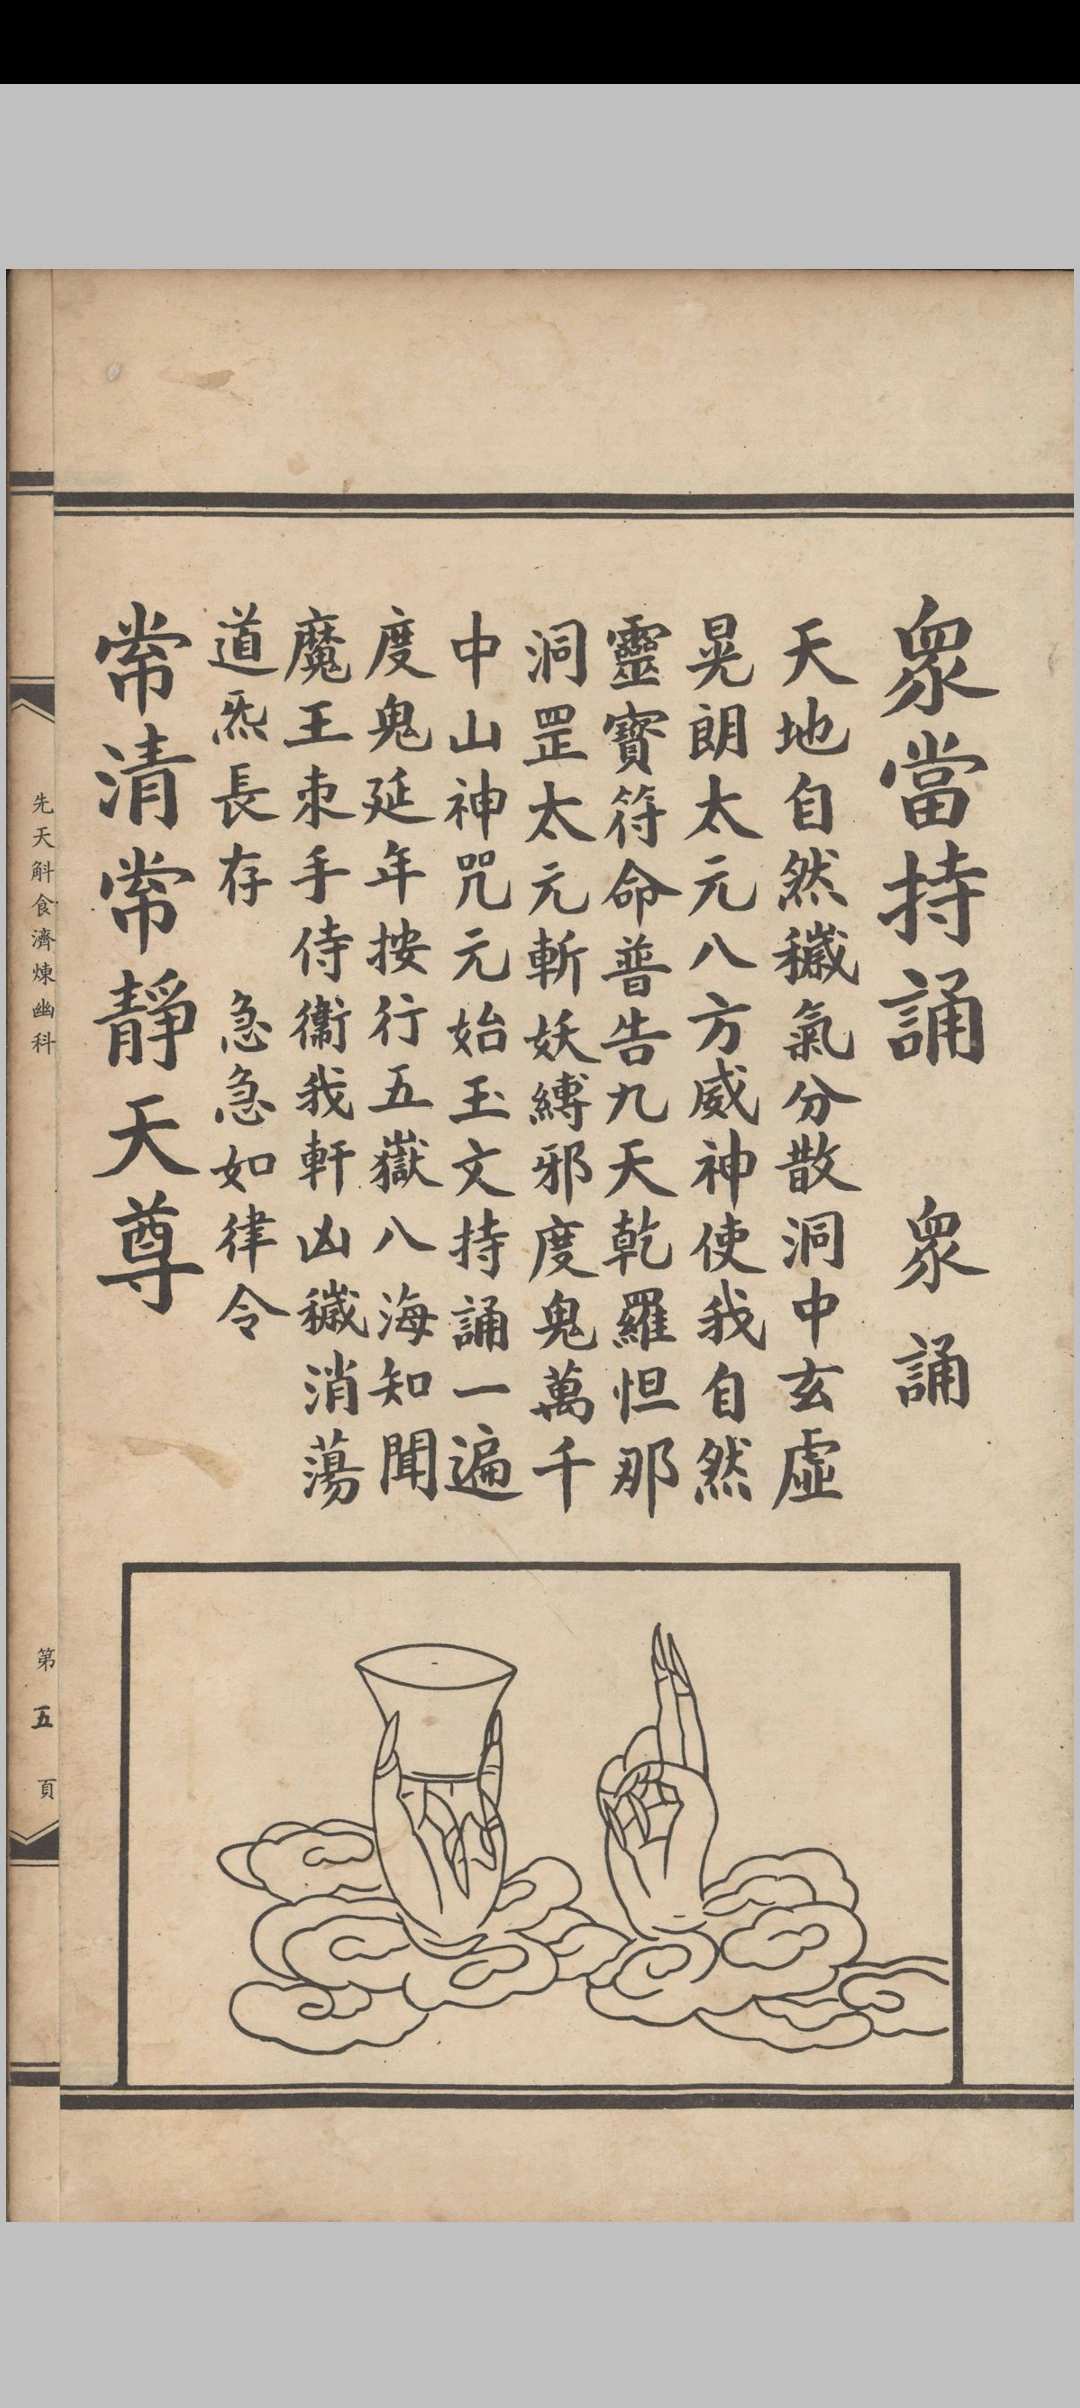 眾當持誦 眾誦
天地自然穢氣分散洞中玄虛
晃朗太元八方威神使我自然
靈寶符命普告九天乾羅怛那
洞罡太元斬妖縛邪度鬼萬千
中山神咒元始玉文持誦一遍
度鬼延年按行五嶽八海知聞
魔王朿手侍衞我軒凶穢消蕩
道炁長存 急急如律令
常清常靜天尊
先天斛食濟煉幽科
第五頁